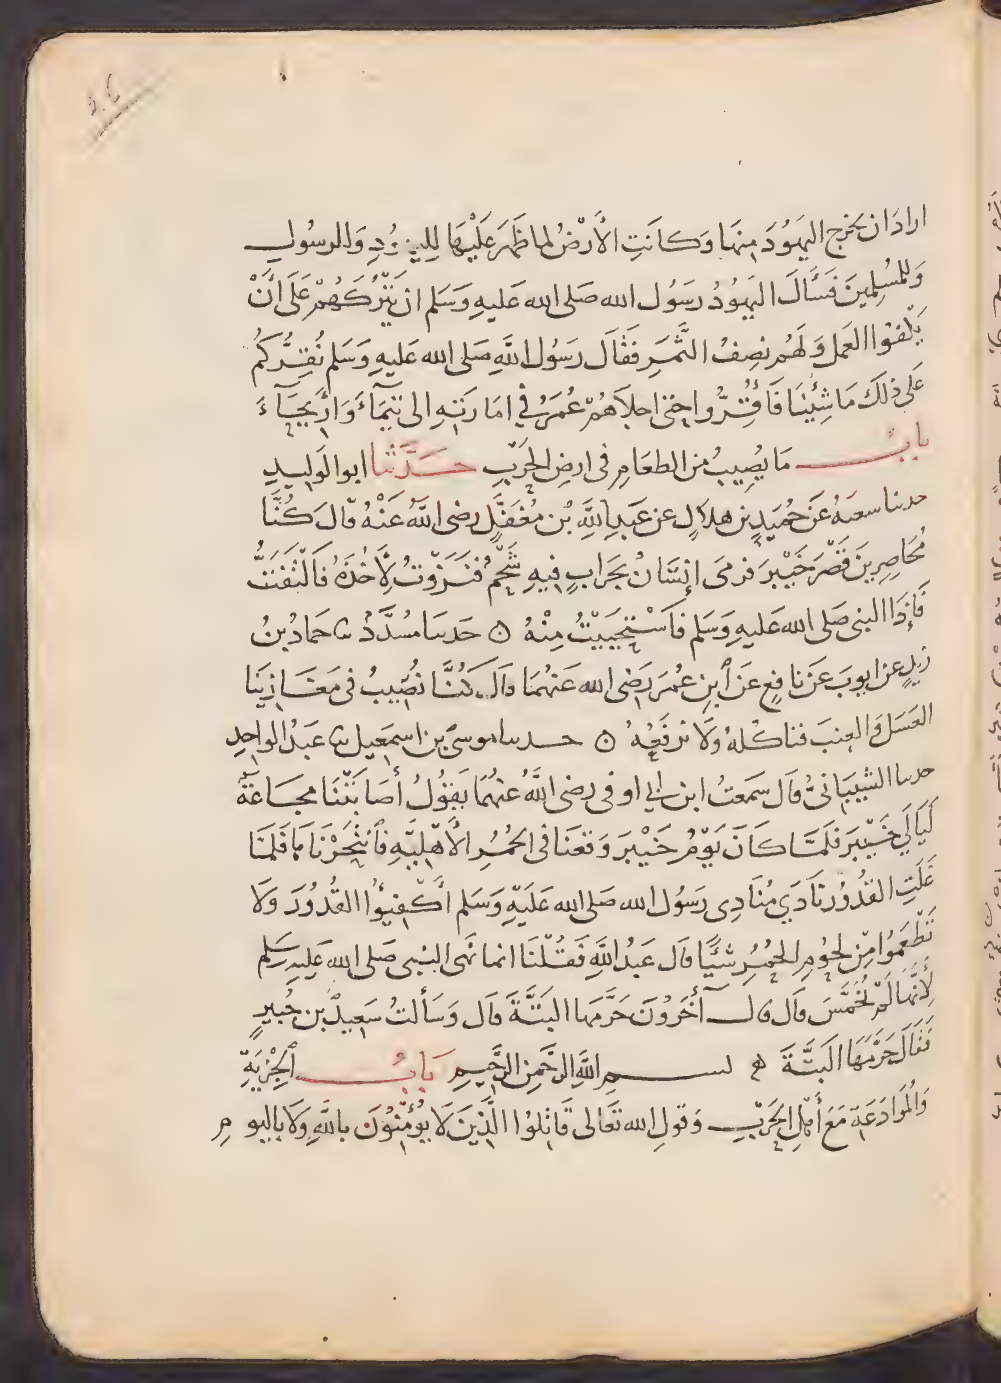 اراد ان يخرج اليهُودَ مِنهَا وَكانَتِ الأرْضُ لما ظَهَرَ عَلَيْهَا لِليهُودِ وَللرسُول
وَللمُسْلِمينَ فسَألَ اليهُودُ رسَوُل الله صَلى الله عَليهِ وَسَلم ان يَتْرُكَهُمْ عَلى أنْ
يَكْفوُا العَمل وَلَهُم نِصفُ الثَّمَرِ فَقاَل رَسوُل اللهِ صَلى الله عَليهِ وَسَلم نُقِرُّكُم
عَلى ذلكَ مَا شِئْنَا فَأُقِرُّوا حتى اجلاَهُمْ عُمَرُ في امَارَتهِ الى تَيْمَآءَ وَأرِيحَآءَ
بابُ مَا يُصِيبُ من الطعَامِ فى ارضِ الحَرْبِ حَدَّثنا ابوا الوَليدِ
حدىنا سعىه عَن حُمَيدِ بن هلاَلٍ عن عَبدِ اللهِ بْن مُغَفَّلٍ رضى اللهُ عَنْهُ قالَ كُنَّا
مُحَاصِرينَ قَصْرَ خَيْبرَ فرمَى إنسَانٌ بجرَابٍ فيهِ شَحْمٌ فنَزَوْتُ لِأَخُذَهُ فاَلْتَفَتُّ
فَإذَا النبى صَلى الله عَليهِ وَسَلم فاَسْتَحْيَيْتُ مِنْهُ ٥ حَدىىا مُسَدَّدٌ ىا حمَادُ بنُ
زيدٍ عن ايوبَ عَن نافعٍ عَن ابنِ عمُرَ رَضى الله عَنهُمَا قالَ كُنَّا نُصِيبُ فى مَغَازِينَا
العَسَلَ وَالعِنبَ فناكُلهُ وَلا نرفَعُهُ ٥ حدىىا موسىَ بن اسمعيل ىا عبَدُ الواحِدِ
حدىا الشيبَانىُّ قال سَمعتُ ابن ابي اوفى رضى اللهُ عَنهُمَا يَقوُلُ أصَابَتْنَا مجَاعَةٌ
لَيَالي خَيْبرَ فلَمَّا كانَ يوَمُ خَيْبرَ وَقعنَا فى الحُمُرِ الأَهْلِيَّهِ فاَنْتَحَرْنَاهَا فلَمَّا
غَلَتِ القدُوُر نَادَي مُنَادِى رسَوُل الله صَلى الله عَلَيْهِ وَسَلم أكْفِئوُا القُدُورَ وَلا
تَطْعَمُوا مِنْ لحُومِ الحُمُرِ شيًا قال عَبدُ اللهِ فَقُلْنَا انما نهَى النبى صَلى الله عَليهِ سَلم
لأَنهَّا لَمْ تُخَمَّسَ قال وقال آخَرُونَ حَرَّمَها البَتَّةَ قال وَسَألتُ سَعيدَ بن جُبيرٍ
فقَالَ حَرَّمَهَا البَتَّةَ ه بسم اللهِ الرحَّمنِ الرحَّيمِ بَابُ الجِزْيَةِ
وَالمُوَادَعَةِ مَعَ أهْلِ الحَرْبِ وَقولِ الله تعَالى قَاتِلوُا الَّذينَ لا يؤُمِنُوْنَ باللهِ وَلا باليومِ